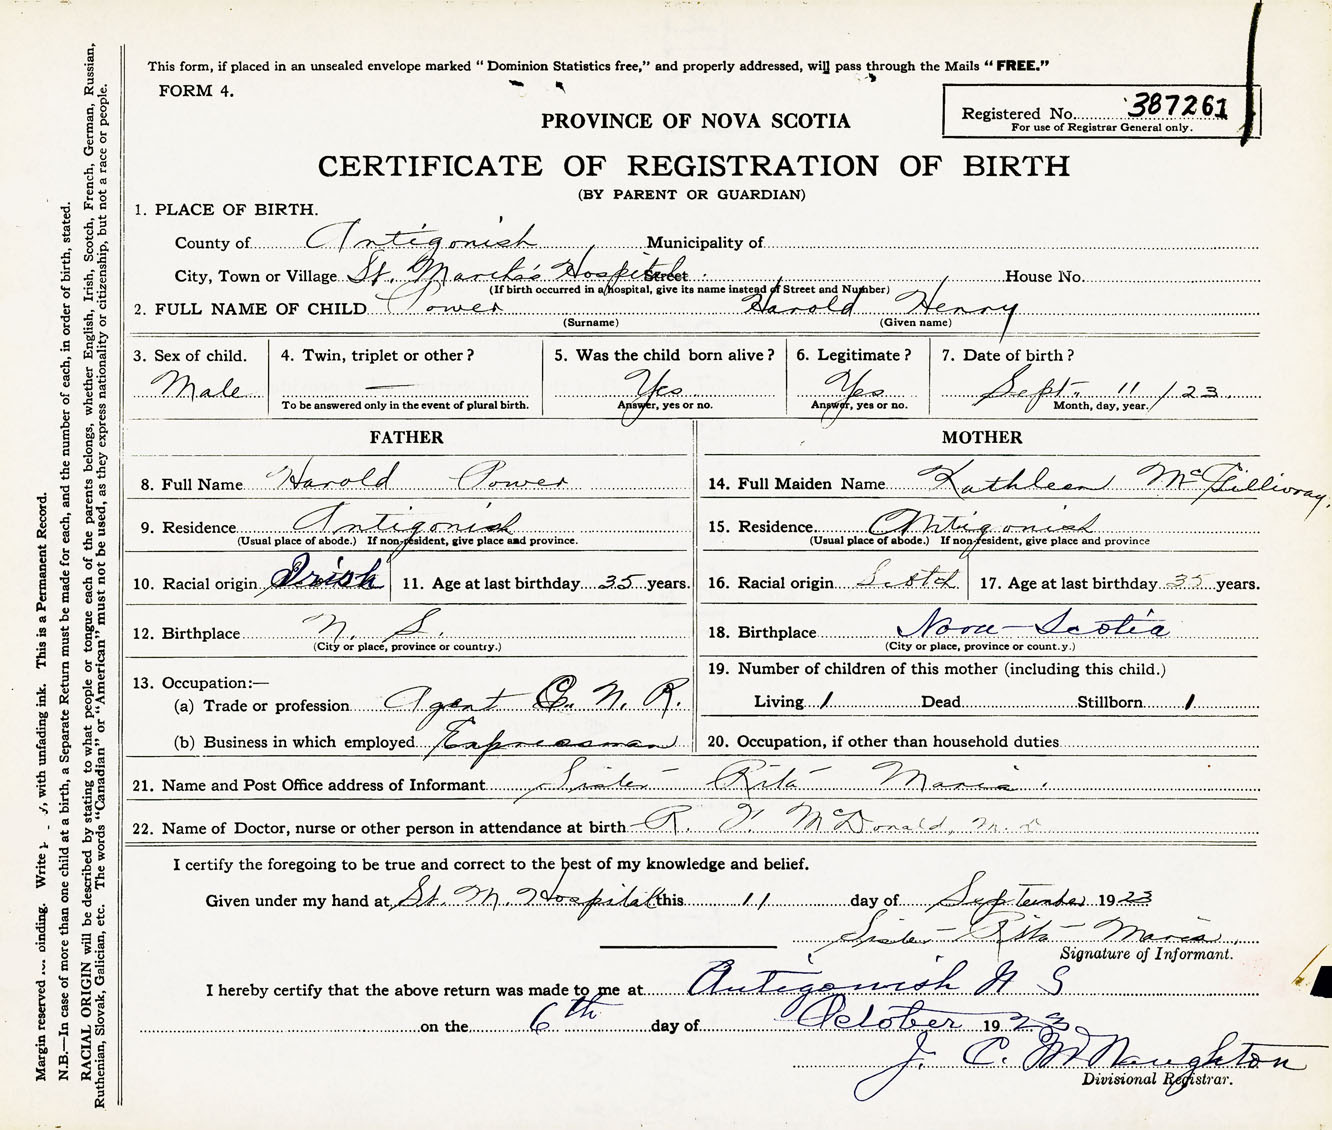 This form, if placed in an unsealed envelope marked "Dominion Statistics free," and properly addressed, will pass through the Mails "FREE."
FORM 4.
Registered No. 387261
For use of Registrar General only.
PROVINCE OF NOVA SCOTIA
CERTIFICATE OF REGISTRATION OF BIRTH
(BY PARENT OR GUARDIAN)
1. PLACE OF BIRTH.
County of Antigonish Municipality of
City, Town or Village St. Martha's Hospital Street House No.
(If birth occurred in a hospital, give its name instead of Street and Number)
2. FULL NAME OF CHILD Power Harold Henry
(Surname) (Given name)
3. Sex of child. 4. Twin, triplet or other? 5. Was the child born alive? 6. Legitimate? 7. Date of birth?
Male — Yes Yes Sept. 11 / 23
To be answered only in the event of plural birth. Answer, yes or no. Answer, yes or no. Month, day, year.
FATHER MOTHER
8. Full Name Harold Power 14. Full Maiden Name Kathleen McGillivray
9. Residence Antigonish 15. Residence Antigonish
(Usual place of abode.) If non-resident, give place and province. (Usual place of abode.) If non-resident, give place and province
10. Racial origin Irish 11. Age at last birthday 35 years. 16. Racial origin Scotch 17. Age at last birthday 35 years.
12. Birthplace N. S. 18. Birthplace Nova-Scotia
(City or place, province or country.) (City or place, province or count.y.)
13. Occupation:— 19. Number of children of this mother (including this child.)
(a) Trade or profession Agent C. N. R. Living 1 Dead Stillborn 1
(b) Business in which employed Expressman 20. Occupation, if other than household duties
21. Name and Post Office address of Informant Sister Rita Maria.
22. Name of Doctor, nurse or other person in attendance at birth R. F. McDonald, M. D
I certify the foregoing to be true and correct to the best of my knowledge and belief.
Given under my hand at St. M. Hospital this 11 day of September 1923
Sister Rita Maria.
Signature of Informant.
I hereby certify that the above return was made to me at Antigonish N S
on the 6th day of October 1923
J. C. McNaughton
Divisional Registrar.
Margin reserved oinding. Write with unfading ink. This is a Permanent Record.
N.B.—In case of more than one child at a birth, a Separate Return must be made for each, and the number of each, in order of birth, stated.
RACIAL ORIGIN will be described by stating to what people or tongue each of the parents belongs, whether English, Irish, Scotch, French, German, Russian,
Ruthenian, Slovak, Galician, etc. The words "Canadian" or "American" must not be used, as they express nationality or citizenship, but not a race or people.